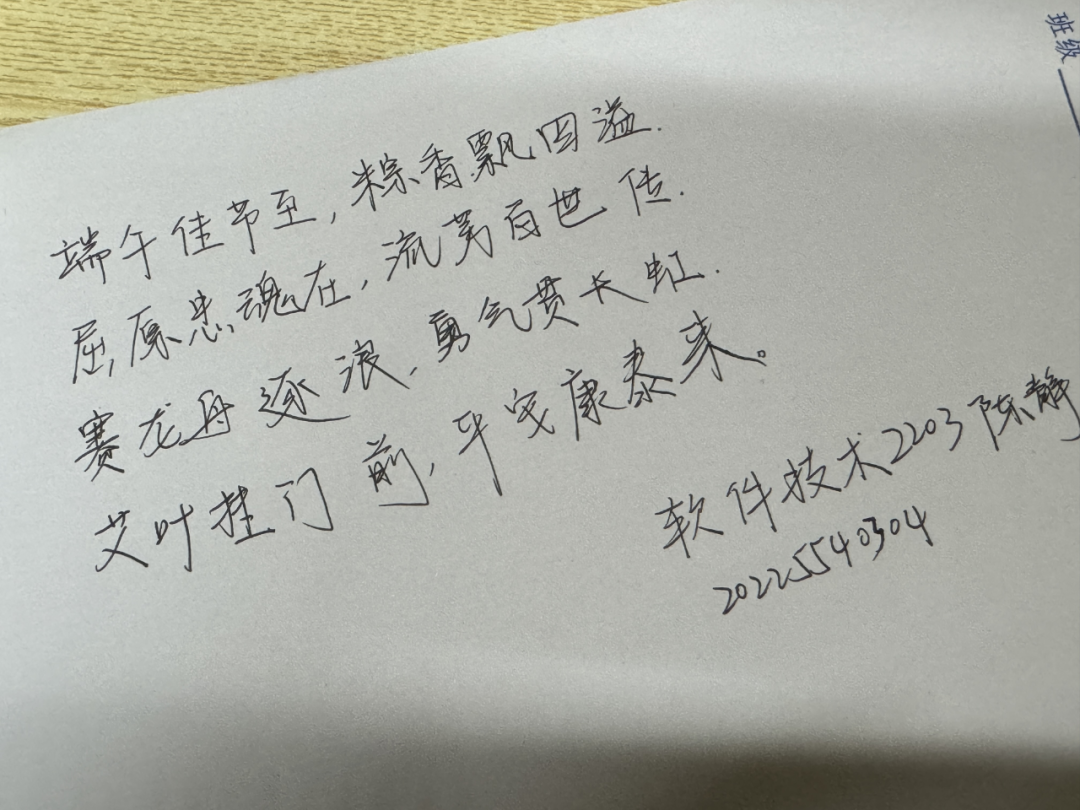 班级
端午佳节至,粽香飘四溢.
屈原忠魂在,流芳百世传.
赛龙舟逐浪,勇气贯长虹.
艾叶挂门前,平安康泰来。
软件技术2203陈静
20225540304